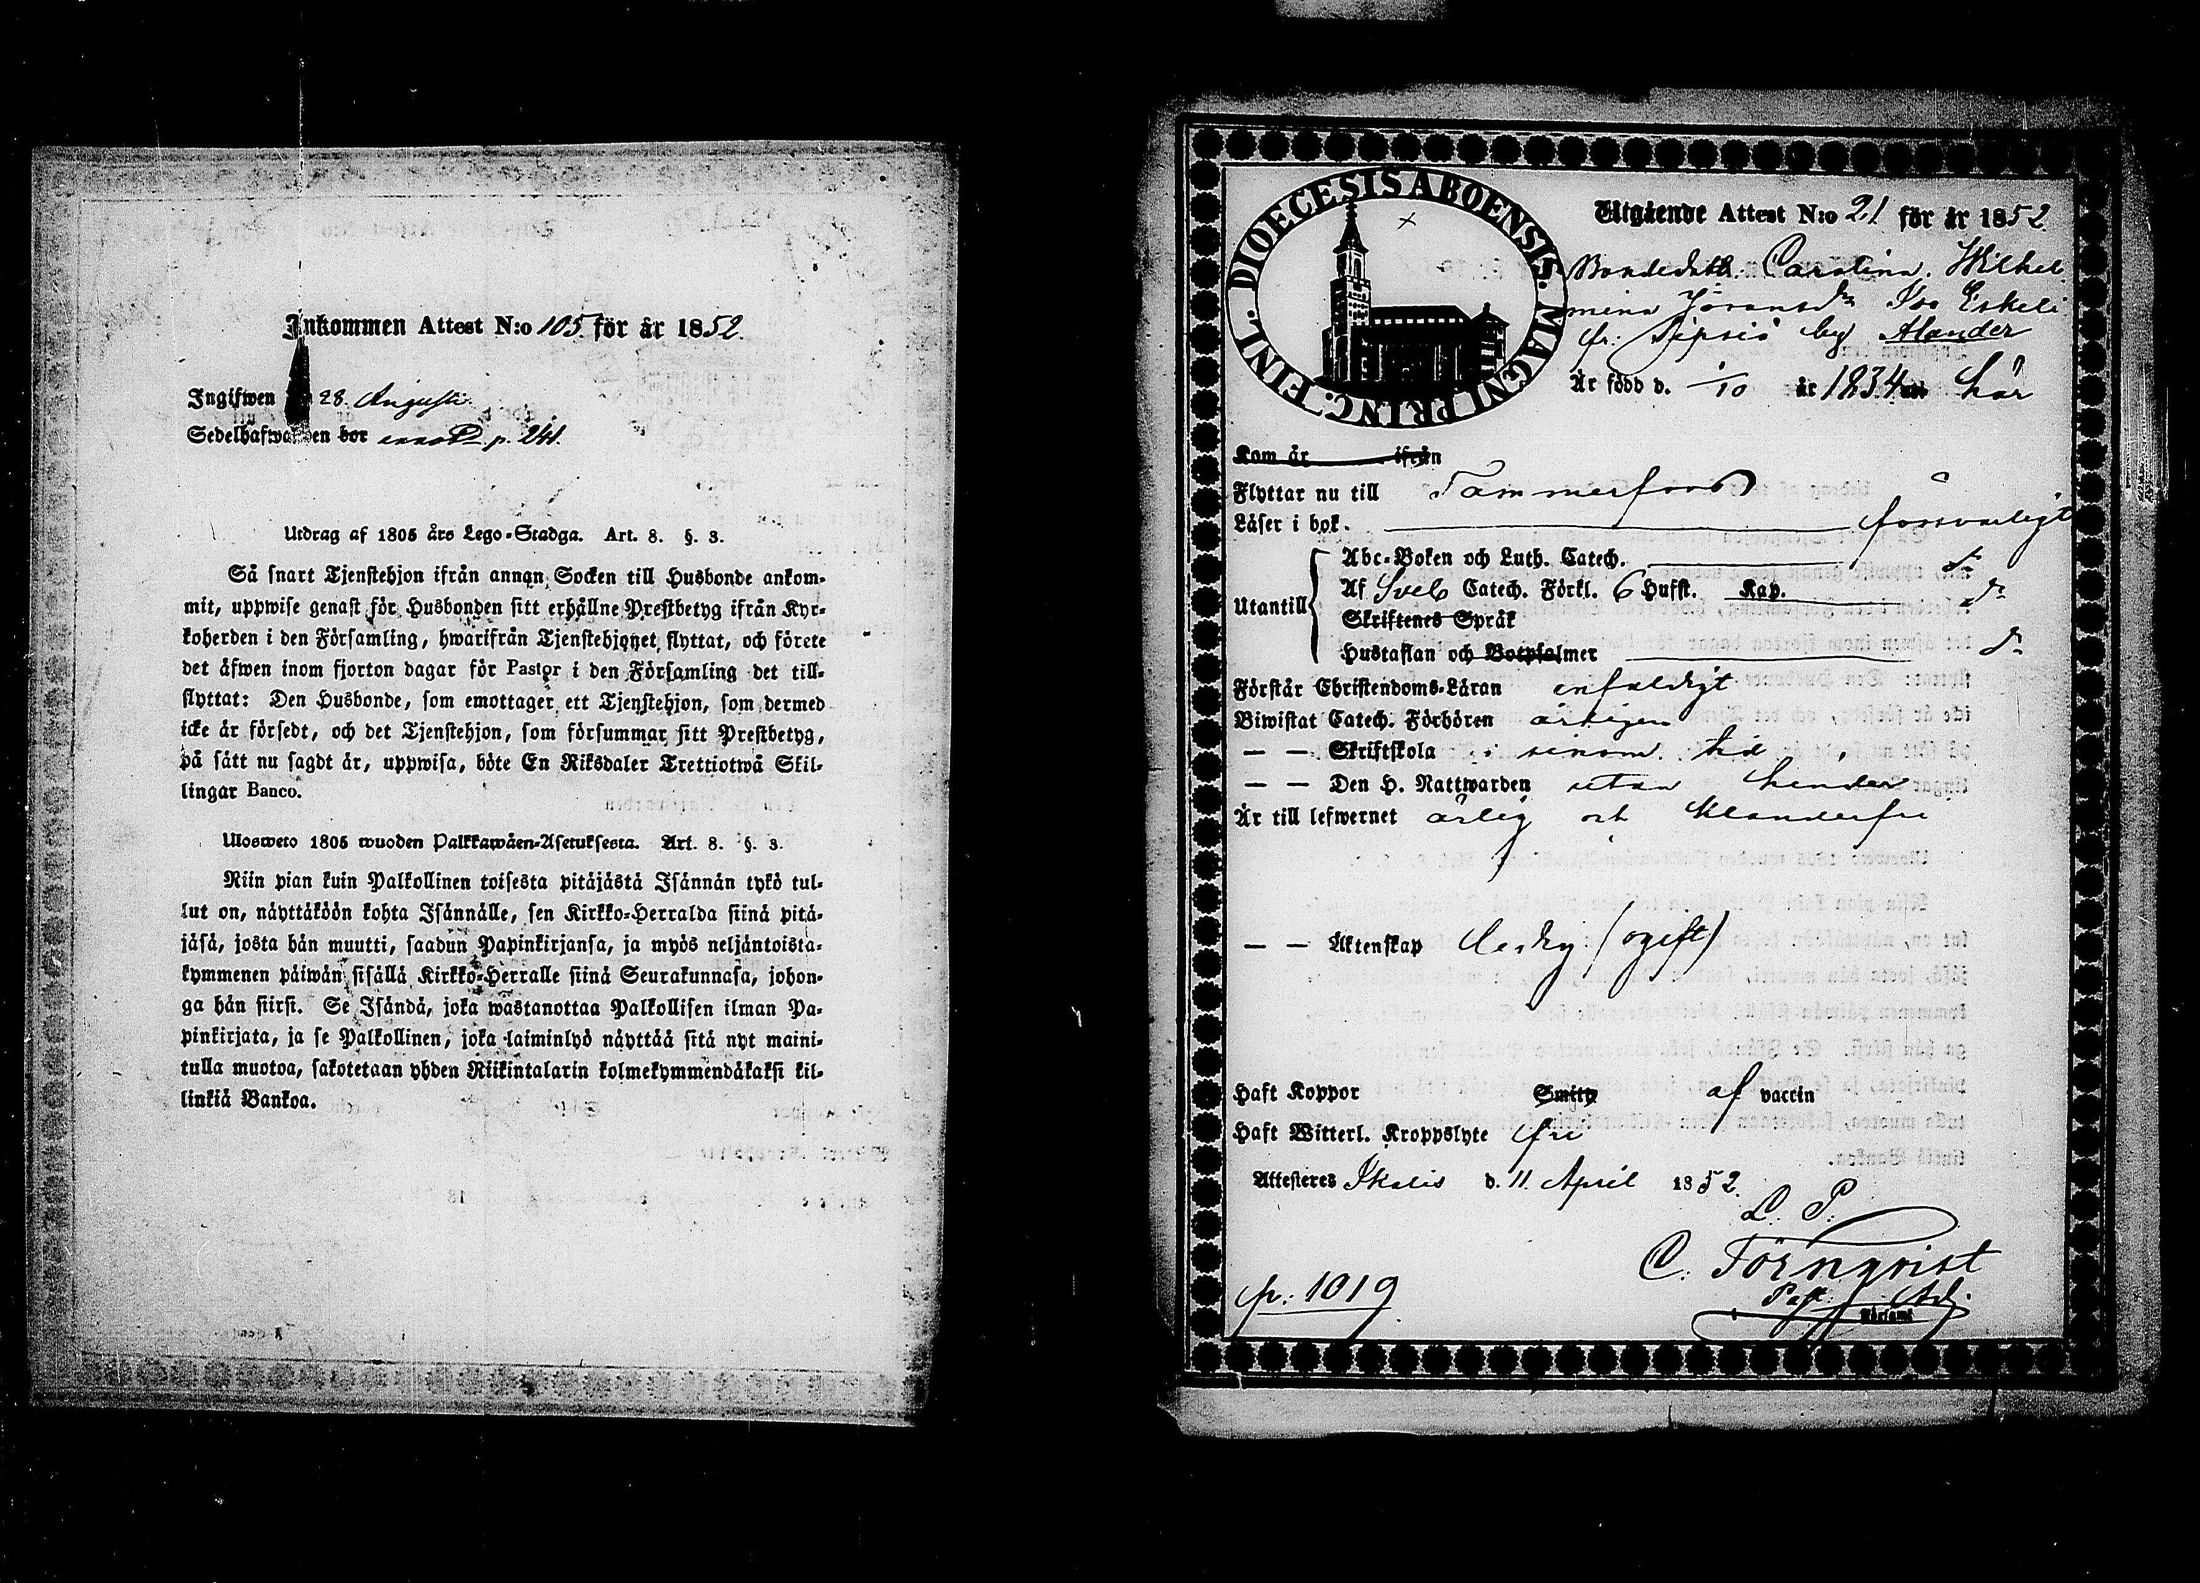 Inkommen Attest N:o 105. för år 1852.
Ingifwen 28. Augusti.
Sedelhafwanden bor p. 241.
Utdrag af 1805 års Lego-Stadga. Art. 8. §. 3.
Så snart Tjenstehjon ifrån annan Socken till Husbonde ankom-
mit, uppwise genast för Husbonden sitt erhållne Prestbetyg ifrån Kyr-
koherden i den Församling, hwarifrån Tjenstehjonet flyttat, och förete
det äfwen inom fjorton dagar för Pastor i den Församling det till-
flyttat: Den Husbonde, som emottager ett Tjenstehjon, som dermed
icke är försedt, och det Tjenstehjon, som försummar sitt Prestbetyg,
på sätt nu sagdt är, uppwisa, böte En Riksdaler Trettiotwå Skil-
lingar Banco.
Ulosweto 1805 wuoden Palkkawäen-Asetuksesta. Art. 8. §. 3.
Niin pian kuin Palkollinen toisesta pitäjästä Isännän tykö tul-
lut on, näyttäköön kohta Isännälle, sen Kirkko-Herralda siinä pitä-
jäsä, josta hän muutti, saadun Papinkirjansa, ja myös neljäntoista-
kymmenen päiwän sisällä Kirkko-Herralle siinä Seurakunnasa, johon-
ga hän siirsi. Se Isändä, joka wastanottaa Palkollisen ilman Pa-
pinkirjata, ja se Palkollinen, joka laiminlyö näyttää sitä nyt maini-
tulla muotoa, sakotetaan yhden Riikintalarin kolmekymmendäkaksi kil-
linkiä Bankoa.
DIOECESIS ABOENSIS. MAGNI PRINC. FINL.
Utgående Attest N:o 21 för år 1852.
Bondedottr. Carolina Wilhel
mina Göransdr Iso Eskeli
fr: Sepsiö by Alander
Är född d. 1/10 år 1834 här
Kom år ifrån
Flyttar nu till Tammerfors
Läser i bok. försvarligt
Abc-Boken och Luth. Catech. do
Utantill Af Sveb Catech. Förkl. 6 Hufst. Kap. do
Skriftenes Språk
Hustaflan och Botpsalmer do
Förstår Christendoms-Läran enfaldigt
Biwistat Catech. Förhören årligen
— — Skriftskola i sinom tid
— — Den H. Nattwarden utan hinder
Är till lefwernet ärlig och klanderfri
— — Äktenskap ledig (ogift)
Haft Koppor Smitt. af vaccin
Haft Witterl. Kroppslyte fri
Attesteres Ikalis d. 11 April 1852.
L. P.
C. Törnqvist
Past. Adj.
p: 1019.